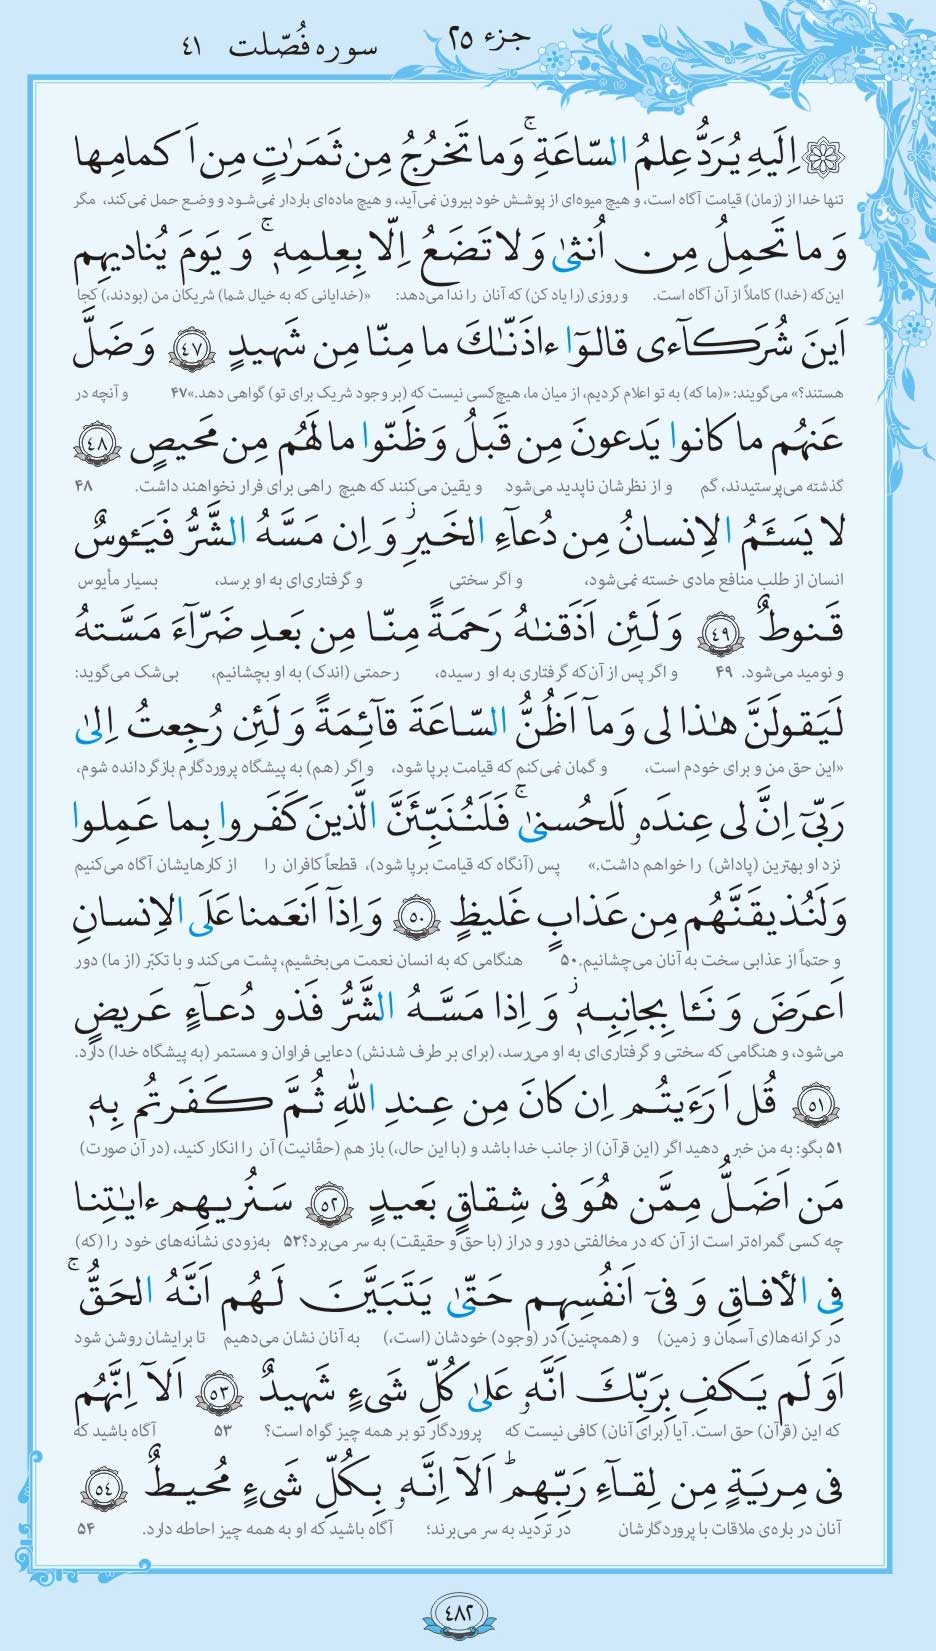 جزء ۲۵
سوره فُصّلت ٤١
اِلَیهِ یُرَدُّ عِلمُ السّاعَةِ ۚ وَ ما تَخرُجُ مِن ثَمَرٰتٍ مِن اَکمامِها
تنها خدا از (زمان) قیامت آگاه است، و هیچ میوه‌ای از پوشش خود بیرون نمی‌آید، و هیچ ماده‌ای باردار نمی‌شود و وضع حمل نمی‌کند، مگر
وَ ما تَحمِلُ مِن اُنثیٰ وَ لا تَضَعُ اِلّا بِعِلمِهٖ ۚ وَ یَومَ یُنادیهِم
این‌که (خدا) کاملاً از آن آگاه است. و روزی (را یاد کن) که آنان را ندا می‌دهد: «(خدایانی که به خیال شما) شریکان من (بودند،) کجا
اَینَ شُرَکآءی قالوٓا ءاذَنّٰکَ ما مِنّا مِن شَهیدٍ ﴿٤٧﴾ وَ ضَلَّ
هستند؟» می‌گویند: «(ما که) به تو اعلام کردیم، از میان ما، هیچ‌کسی نیست که (بر وجود شریک برای تو) گواهی دهد.» ۴۷ و آنچه در
عَنهُم ما کانوا یَدعونَ مِن قَبلُ وَ ظَنّوا ما لَهُم مِن مَحیصٍ ﴿٤٨﴾
گذشته می‌پرستیدند، گم و از نظرشان ناپدید می‌شود و یقین می‌کنند که هیچ راهی برای فرار نخواهند داشت. ۴۸
لا یَسئَمُ الاِنسانُ مِن دُعآءِ الخَیرِ ز وَ اِن مَسَّهُ الشَّرُّ فَیَئوسٌ
انسان از طلب منافع مادی خسته نمی‌شود، و اگر سختی و گرفتاری‌ای به او برسد، بسیار مأیوس
قَنوطٌ ﴿٤٩﴾ وَ لَئِن اَذَقنٰهُ رَحمَةً مِنّا مِن بَعدِ ضَرّآءَ مَسَّتهُ
و نومید می‌شود. ۴۹ و اگر پس از آن‌که گرفتاری به او رسیده، رحمتی (اندک) به او بچشانیم، بی‌شک می‌گوید:
لَیَقولَنَّ هٰذا لی وَ مآ اَظُنُّ السّاعَةَ قآئِمَةً وَ لَئِن رُجِعتُ اِلیٰ
«این حق من و برای خودم است، و گمان نمی‌کنم که قیامت برپا شود، و اگر (هم) به پیشگاه پروردگارم بازگردانده شوم،
رَبّیٓ اِنَّ لی عِندَهٗ لَلحُسنیٰ ۚ فَلَنُنَبِّئَنَّ الَّذینَ کَفَروا بِما عَمِلوا
نزد او بهترین (پاداش) را خواهم داشت.» پس (آنگاه که قیامت برپا شود)، قطعاً کافران را از کارهایشان آگاه می‌کنیم
وَ لَنُذیقَنَّهُم مِن عَذابٍ غَلیظٍ ﴿٥٠﴾ وَ اِذآ اَنعَمنا عَلَی الاِنسانِ
و حتماً از عذابی سخت به آنان می‌چشانیم. ۵۰ هنگامی که به انسان نعمت می‌بخشیم، پشت می‌کند و با تکبّر (از ما) دور
اَعرَضَ وَ نَـٔا بِجانِبِهٖ ز وَ اِذا مَسَّهُ الشَّرُّ فَذو دُعآءٍ عَریضٍ
می‌شود، و هنگامی که سختی و گرفتاری‌ای به او می‌رسد، (برای بر طرف شدنش) دعایی فراوان و مستمر (به پیشگاه خدا) دارد.
﴿٥١﴾ قُل اَرَءَیتُم اِن کانَ مِن عِندِ اللّٰهِ ثُمَّ کَفَرتُم بِهٖ
۵۱ بگو: به من خبر دهید اگر (این قرآن) از جانب خدا باشد و (با این حال،) باز هم (حقّانیت) آن را انکار کنید، (در آن صورت)
مَن اَضَلُّ مِمَّن هُوَ فی شِقاقٍ بَعیدٍ ﴿٥٢﴾ سَنُریهِم ءایٰتِنا
چه کسی گمراه‌تر است از آن که در مخالفتی دور و دراز (با حق و حقیقت) به سر می‌برد؟ ۵۲ به‌زودی نشانه‌های خود را (که)
فِی الأفاقِ وَ فیٓ اَنفُسِهِم حَتّیٰ یَتَبَیَّنَ لَهُم اَنَّهُ الحَقُّ ۚ
در کرانه‌ها(ی آسمان و زمین) و (همچنین) در (وجود) خودشان (است،) به آنان نشان می‌دهیم تا برایشان روشن شود
اَوَ لَم یَکفِ بِرَبِّکَ اَنَّهٗ عَلیٰ کُلِّ شَیءٍ شَهیدٌ ﴿٥٣﴾ اَلآ اِنَّهُم
که این (قرآن) حق است. آیا (برای آنان) کافی نیست که پروردگار تو بر همه چیز گواه است؟ ۵۳ آگاه باشید که
فی مِریَةٍ مِن لِقآءِ رَبِّهِم ؕ اَلآ اِنَّهٗ بِکُلِّ شَیءٍ مُحیطٌ ﴿٥٤﴾
آنان درباره‌ی ملاقات با پروردگارشان در تردید به سر می‌برند؛ آگاه باشید که او به همه چیز احاطه دارد. ۵۴
٤٨٢